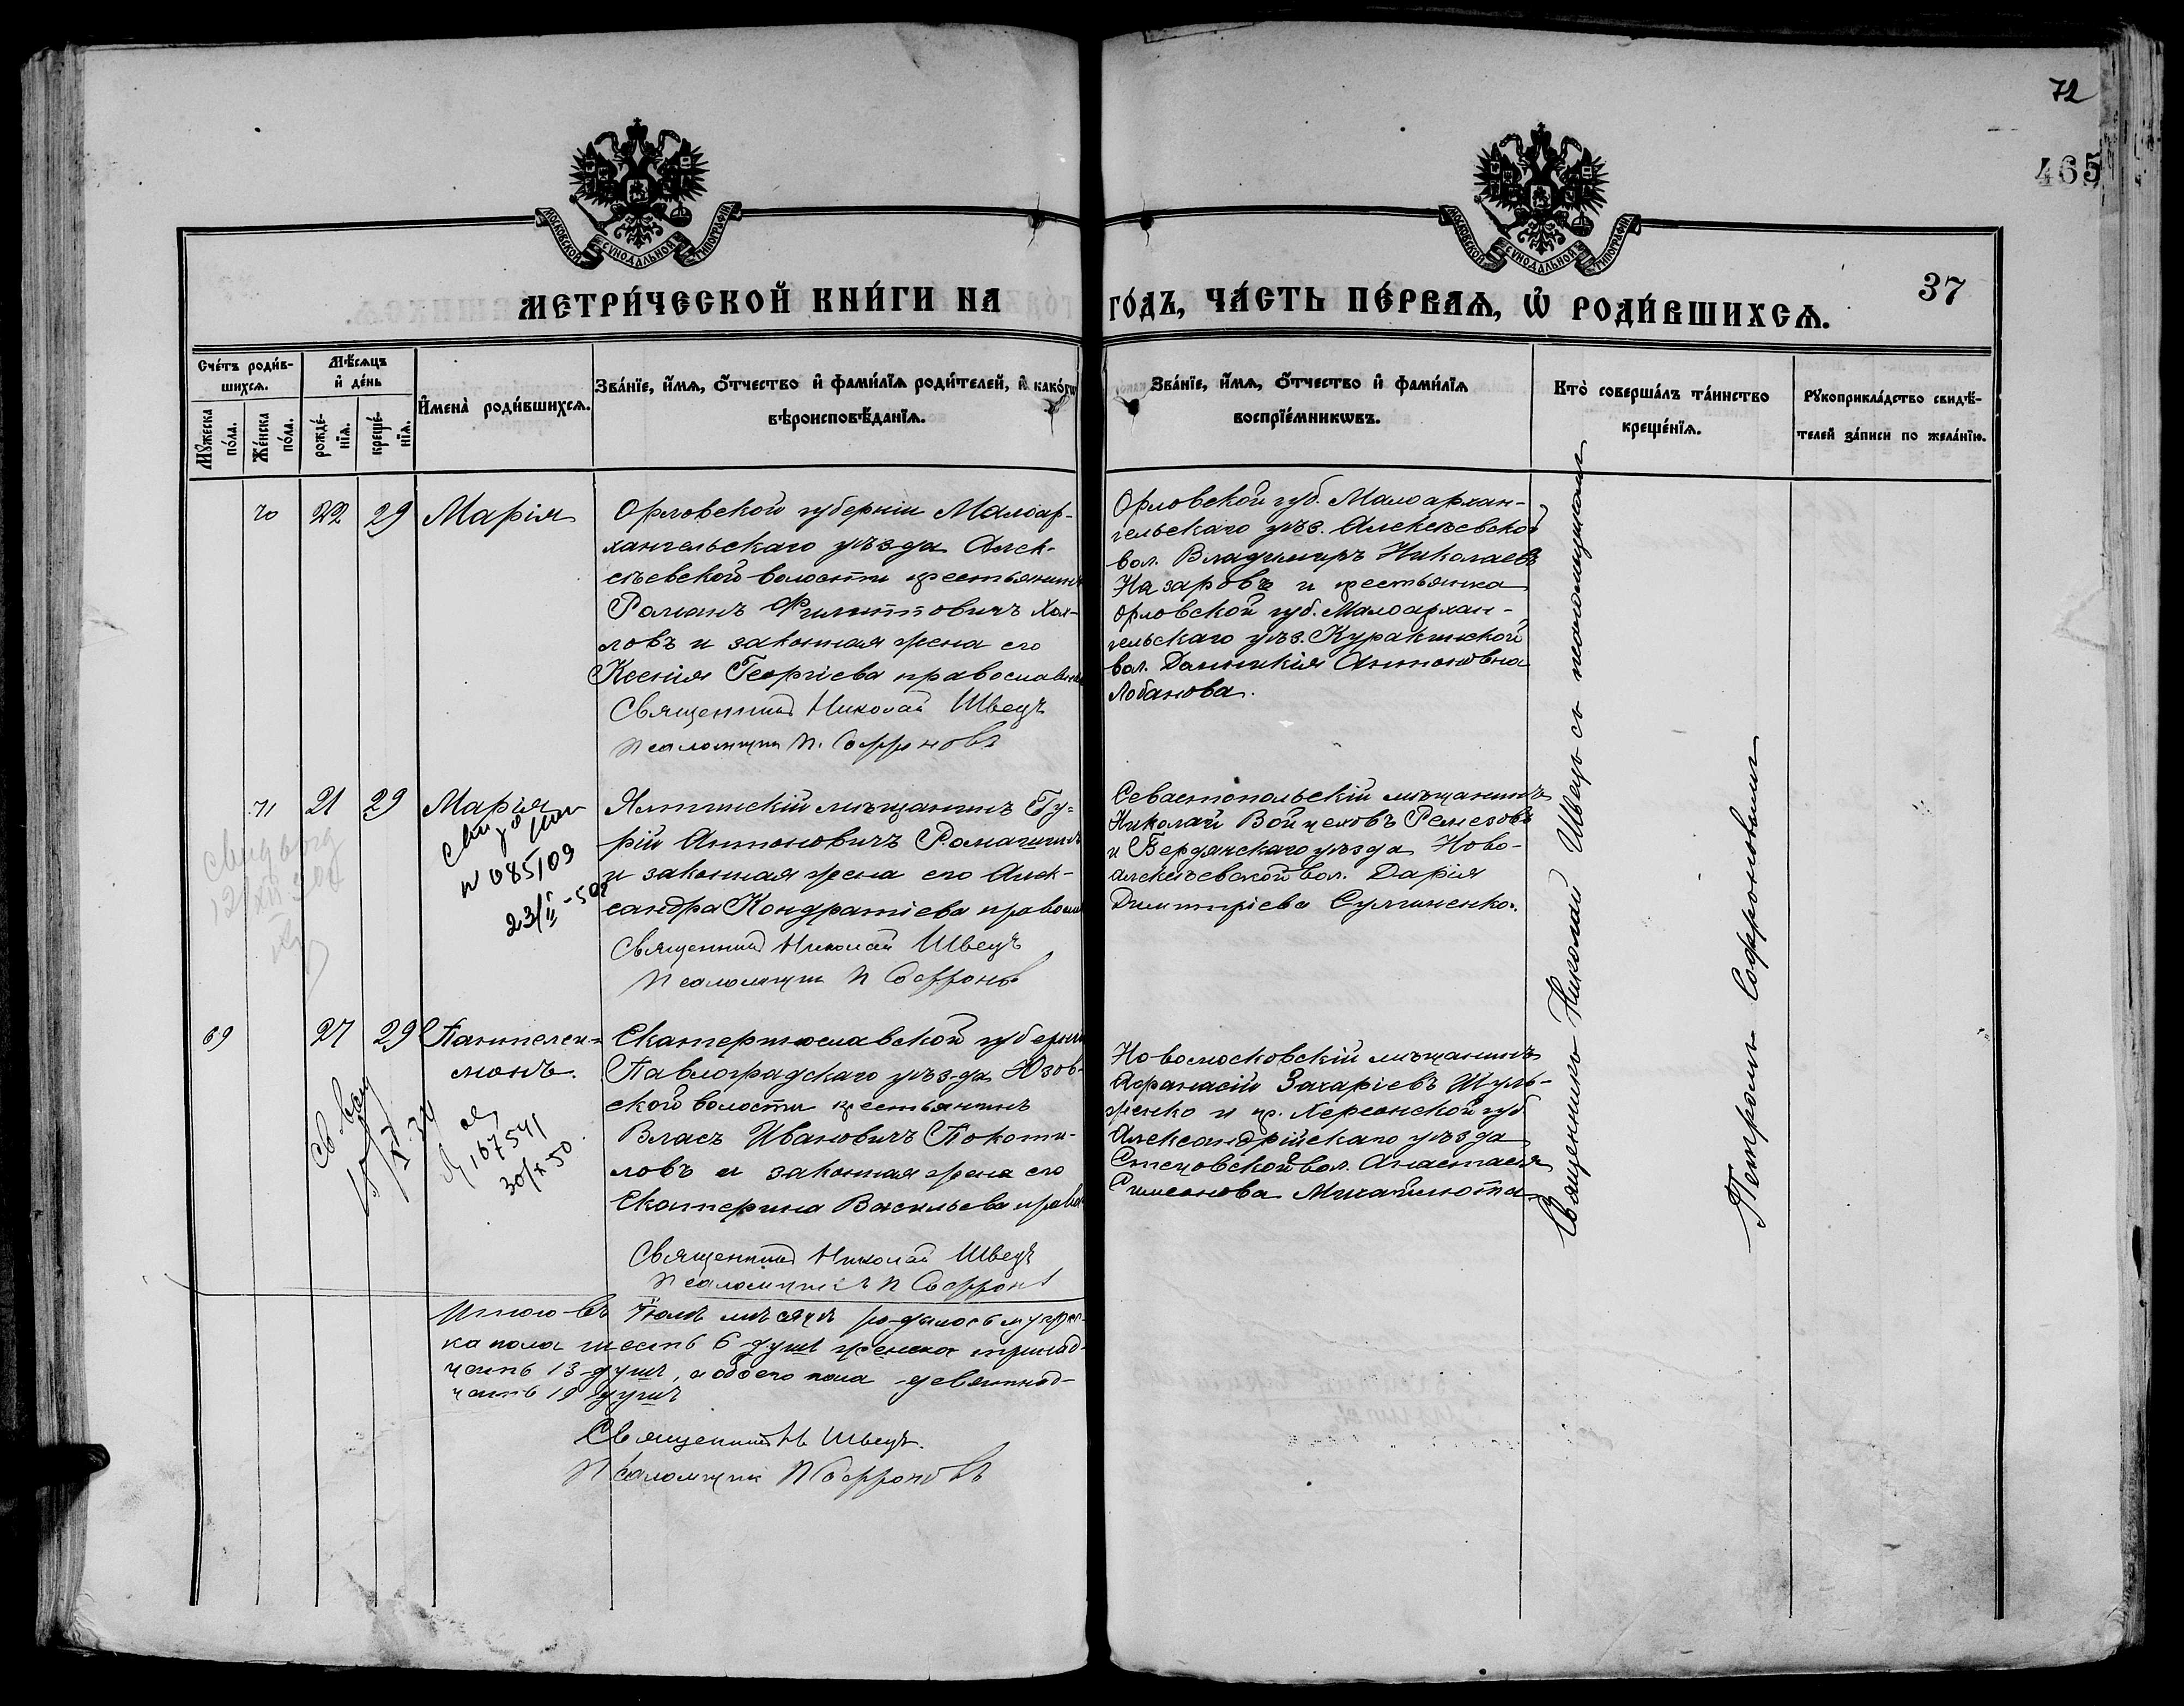 72
465
37
МОСКОВСКОЙ СѴНОДАЛЬНОЙ ТИПОГРАФІИ
МОСКОВСКОЙ СѴНОДАЛЬНОЙ ТИПОГРАФІИ
МЕТРИ́ЧЕСКОЙ КНИ́ГИ НА
ГО́ДЪ, ЧА́СТЬ ПЕ́РВАѦ, Ѽ РОДИ́ВШИХСѦ.
Сче́тъ роди́в-
шихсѧ.
Мꙋ́жеска по́ла.
Же́нска по́ла.
Мѣ́сѧцъ
и҆ де́нь
рожде́-
нїѧ.
креще́-
нїѧ.
И҆мена̀ роди́вшихсѧ.
Зва́нїе, и҆́мѧ, ѻ҆́тчество и҆ фами́лїѧ роди́телей, и҆ како́гѡ
вѣроисповѣ́данїѧ.
Зва́нїе, и҆́мѧ, ѻ҆́тчество и҆ фами́лїѧ
воспрїе́мникѡвъ.
Кто̀ соверша́лъ та́инство
креще́нїѧ.
Рꙋкоприкла́дство свидѣ́-
телей за́писи по жела́нїю.
70 22 29 Марія
Орловской губерніи Малоар-
хангельскаго уѣзда Алек-
сѣевской волости крестьянинъ
Романъ Филипповичъ
ловъ и законная жена его
Ксенія Георгіева православн
Священникъ Николай Швецъ
Псаломщикъ П. Софроновъ
Орловской губ. Малоархан-
гельскаго уѣз. Алексѣевской
вол. Владимиръ Николаевъ
Назаровъ и крестьянка
Орловской губ. Малоархан-
гельскаго уѣз. Куракинской
вол. Домникія Антоновна
Лобанова.
71 21 29 Марія
№ 085109
23/II-50г
Ялтинскій мѣщанинъ Гу-
рій Антоновичъ Ромашинъ
и законная жена его Алек-
сандра Кондратіева правосл
Священникъ Николай Швецъ
Псаломщикъ П Софроновъ
Севастопольскій мѣщанинъ
Николай Войцеховъ Ремезовъ
и Бердянскаго уѣзда Ново-
алексѣевской вол. Дарія
Димитріева Сулименко.
69 27 29 Пантелеи-
монъ.
167541
30/X-50.
Екатеринославской губерніи
Павлоградскаго уѣзда Юзов-
ской волости крестьянинъ
Власъ Ивановичъ Покоти-
ловъ и законная жена его
Екатерина Васильева правос
Священникъ Николай Швецъ
Псаломщикъ П Софронов
Новомосковскій мѣщанинъ
Афанасій Захаріевъ Шуль-
женко и кр. Херсонской губ
Александрійскаго уѣзда
Стецовской вол. Анастасія
Симеонова Михайлюта.
Священникъ Николай Швецъ съ псаломщикомъ
Петромъ Софроновымъ
Итого въ Іюлѣ мѣсяцѣ родилось мужес-
ка пола шесть 6 душъ женска тринад-
цать 13 душъ, а обоего пола девятнад-
цать 19 душъ
Священникъ Н Швецъ.
Псаломщикъ П Софроновъ